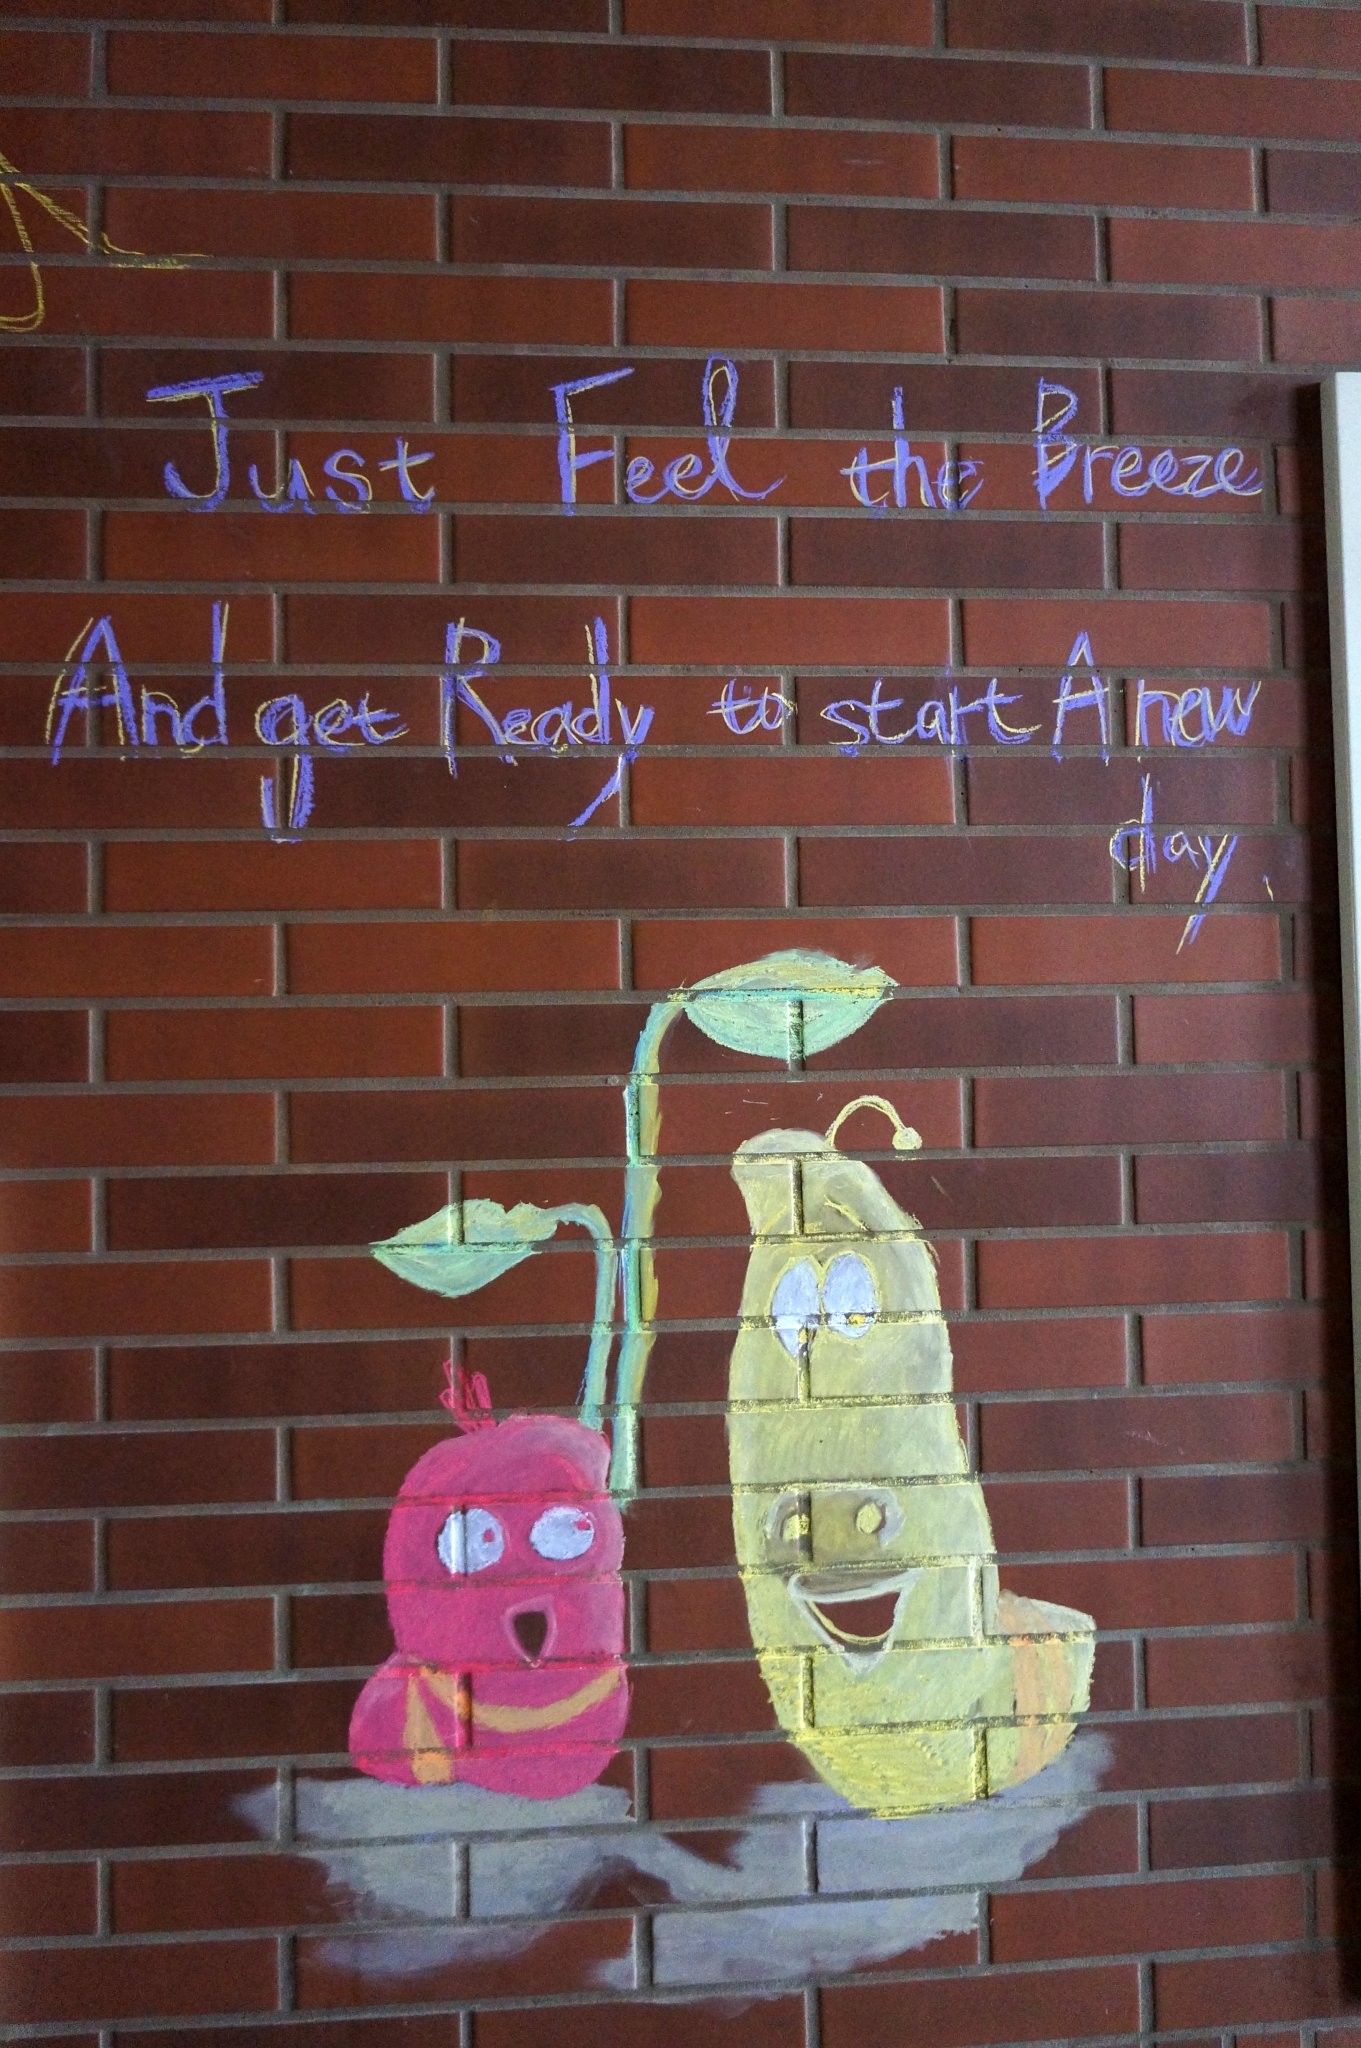 Just Feel the Breeze
And get Ready to start A new
day.